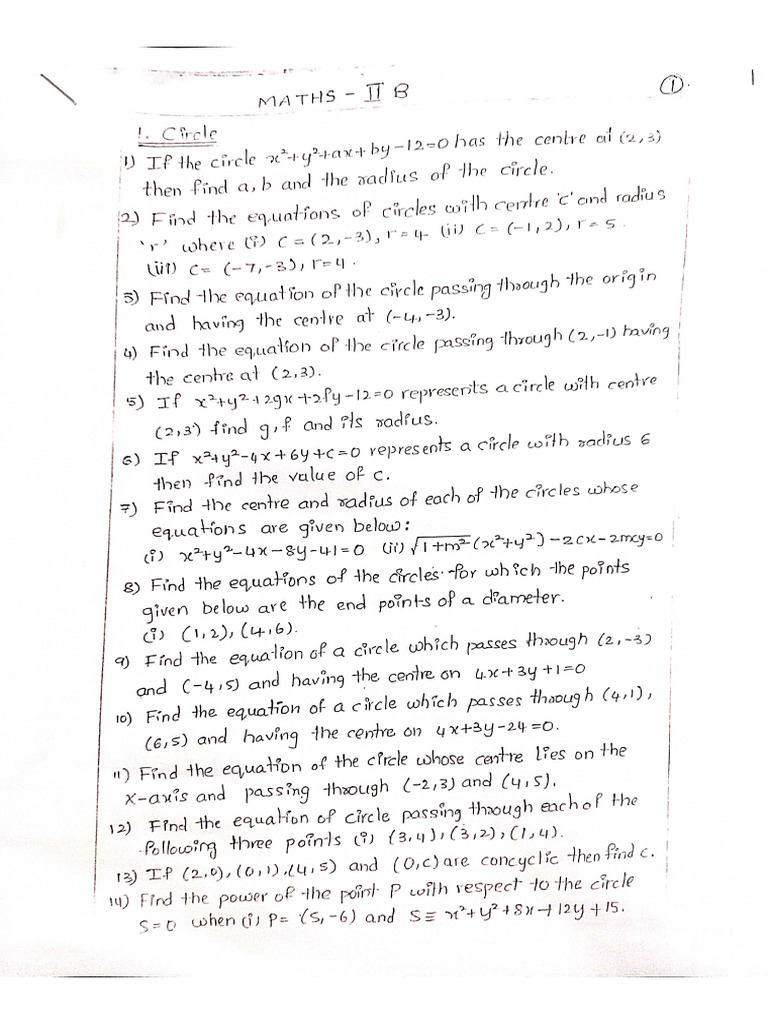 MATHS - II B
①.
1. Circle
1) If the circle x²+y²+ax+by-12=0 has the centre at (2,3)
then find a, b and the radius of the circle.
2) Find the equations of circles with centre 'c' and radius
'r' where (i) C = (2,-3), r=4 (ii) C = (-1,2), r=5.
(iii) C= (-7,-3), r=4.
3) Find the equation of the circle passing through the origin
and having the centre at (-4,-3).
4) Find the equation of the circle passing through (2,-1) having
the centre at (2,3).
5) If x²+y²+2gx+2fy-12=0 represents a circle with centre
(2,3) find g,f and its radius.
6) If x²+y²-4x+6y+c=0 represents a circle with radius 6
then find the value of c.
7) Find the centre and radius of each of the circles whose
equations are given below:
(i) x²+y²-4x-8y-41=0 (ii) √1+m² (x²+y²)-2cx-2mcy=0
8) Find the equations of the circles for which the points
given below are the end points of a diameter.
(i) (1,2), (4,6).
9) Find the equation of a circle which passes through (2,-3)
and (-4,5) and having the centre on 4x+3y+1=0
10) Find the equation of a circle which passes through (4,1),
(6,5) and having the centre on 4x+3y-24=0.
11) Find the equation of the circle whose centre lies on the
X-axis and passing through (-2,3) and (4,5).
12) Find the equation of circle passing through each of the
following three points (i) (3,4), (3,2), (1,4).
13) If (2,0), (0,1), (4,5) and (0,c) are concyclic then find c.
14) Find the power of the point P with respect to the circle
S=0 when (i) P= (5,-6) and S≡ x²+y²+8x+12y+15.